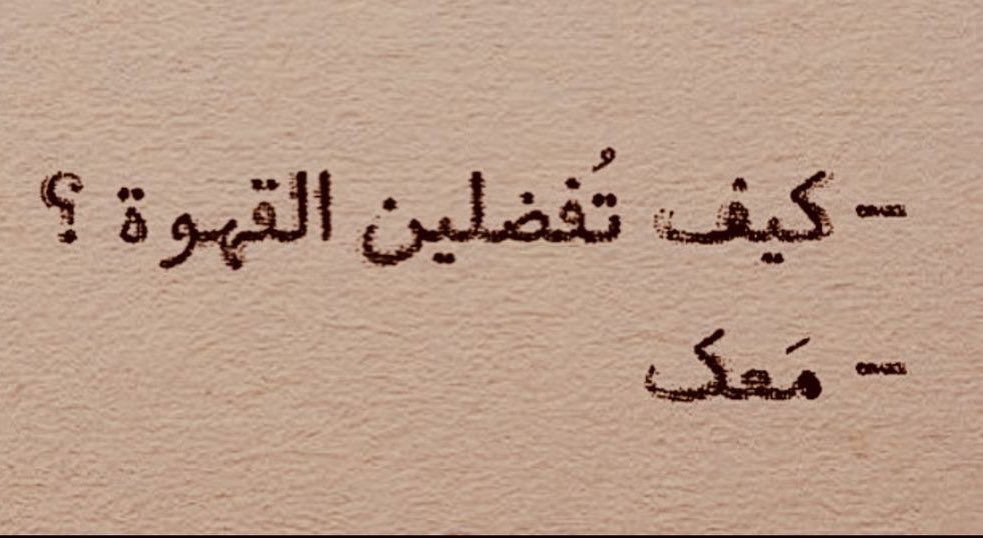 - كيف تُفضلين القهوة ؟
- مَعك